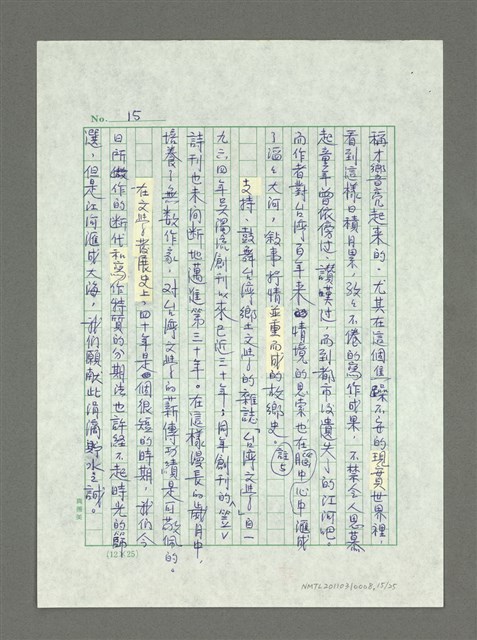 No. 15
稱才響亮起來的。尤其在這個焦躁不安的現實世界裡，
看到這樣日積月累，孜孜不倦的寫作成果，不禁令人思慕
起童年曾依傍過、讚嘆過，而到都市後遺失了的江河吧。
而作者對台灣百年來的情境的思索也在腦中心中滙成
了滔滔大河，敘事抒情並重而成的故鄉史。註5
支持、鼓舞台灣鄉土文學的雜誌「台灣文學」自一
九六四年吳濁流創刊以來已近三十年；同年創刊的「笠」
詩刊也未間斷地邁進第三十年。在這樣漫長的歲月中，
培養了無數作家，對台灣文學的薪傳功績是可敬佩的。
在文學發展史上，四十年是個很短的時期，我們今
日所做作的断代和寫作特質的分期法也許經不起時光的篩
選，但是江河滙成大海，我們願獻此涓滴貯水之誠。
(12×25)
NMTL20110310008_15/25